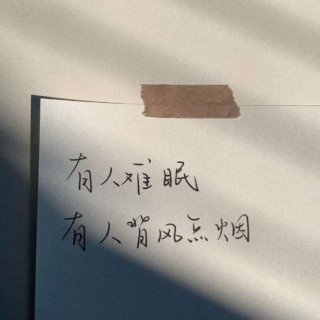 有人难眠
有人背风点烟